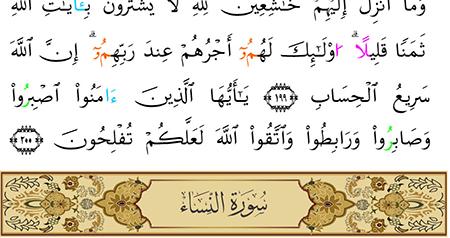 وَمَا أُنزِلَ إِلَيْهِمْ خَٰشِعِينَ لِلهِ لَا يَشْتَرُونَ بِـَٔايَٰتِ اللَّهِ
ثَمَنًا قَلِيلًاۗ اوْلَٰٓئِكَ لَهُمُۥٓ أَجْرُهُمْ عِندَ رَبِّهِمُۥٓۗ إِنَّ اللَّهَ
سَرِيعُ الْحِسَابِ ١٩٩ يَٰٓأَيُّهَا الَّذِينَ ءَامَنُواْ اصْبِرُواْ
وَصَابِرُواْ وَرَابِطُواْ وَاتَّقُواْ اللَّهَ لَعَلَّكُمْ تُفْلِحُونَ ٢٠٠
سُورَةُ النِّسَاءِ